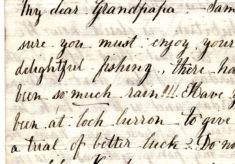 My dear Grandpapa - I am
sure you must enjoy your
delightful fishing, there has
been so much rain!!! Have you
been at Loch Lurron to give
a trial of better luck? Do not